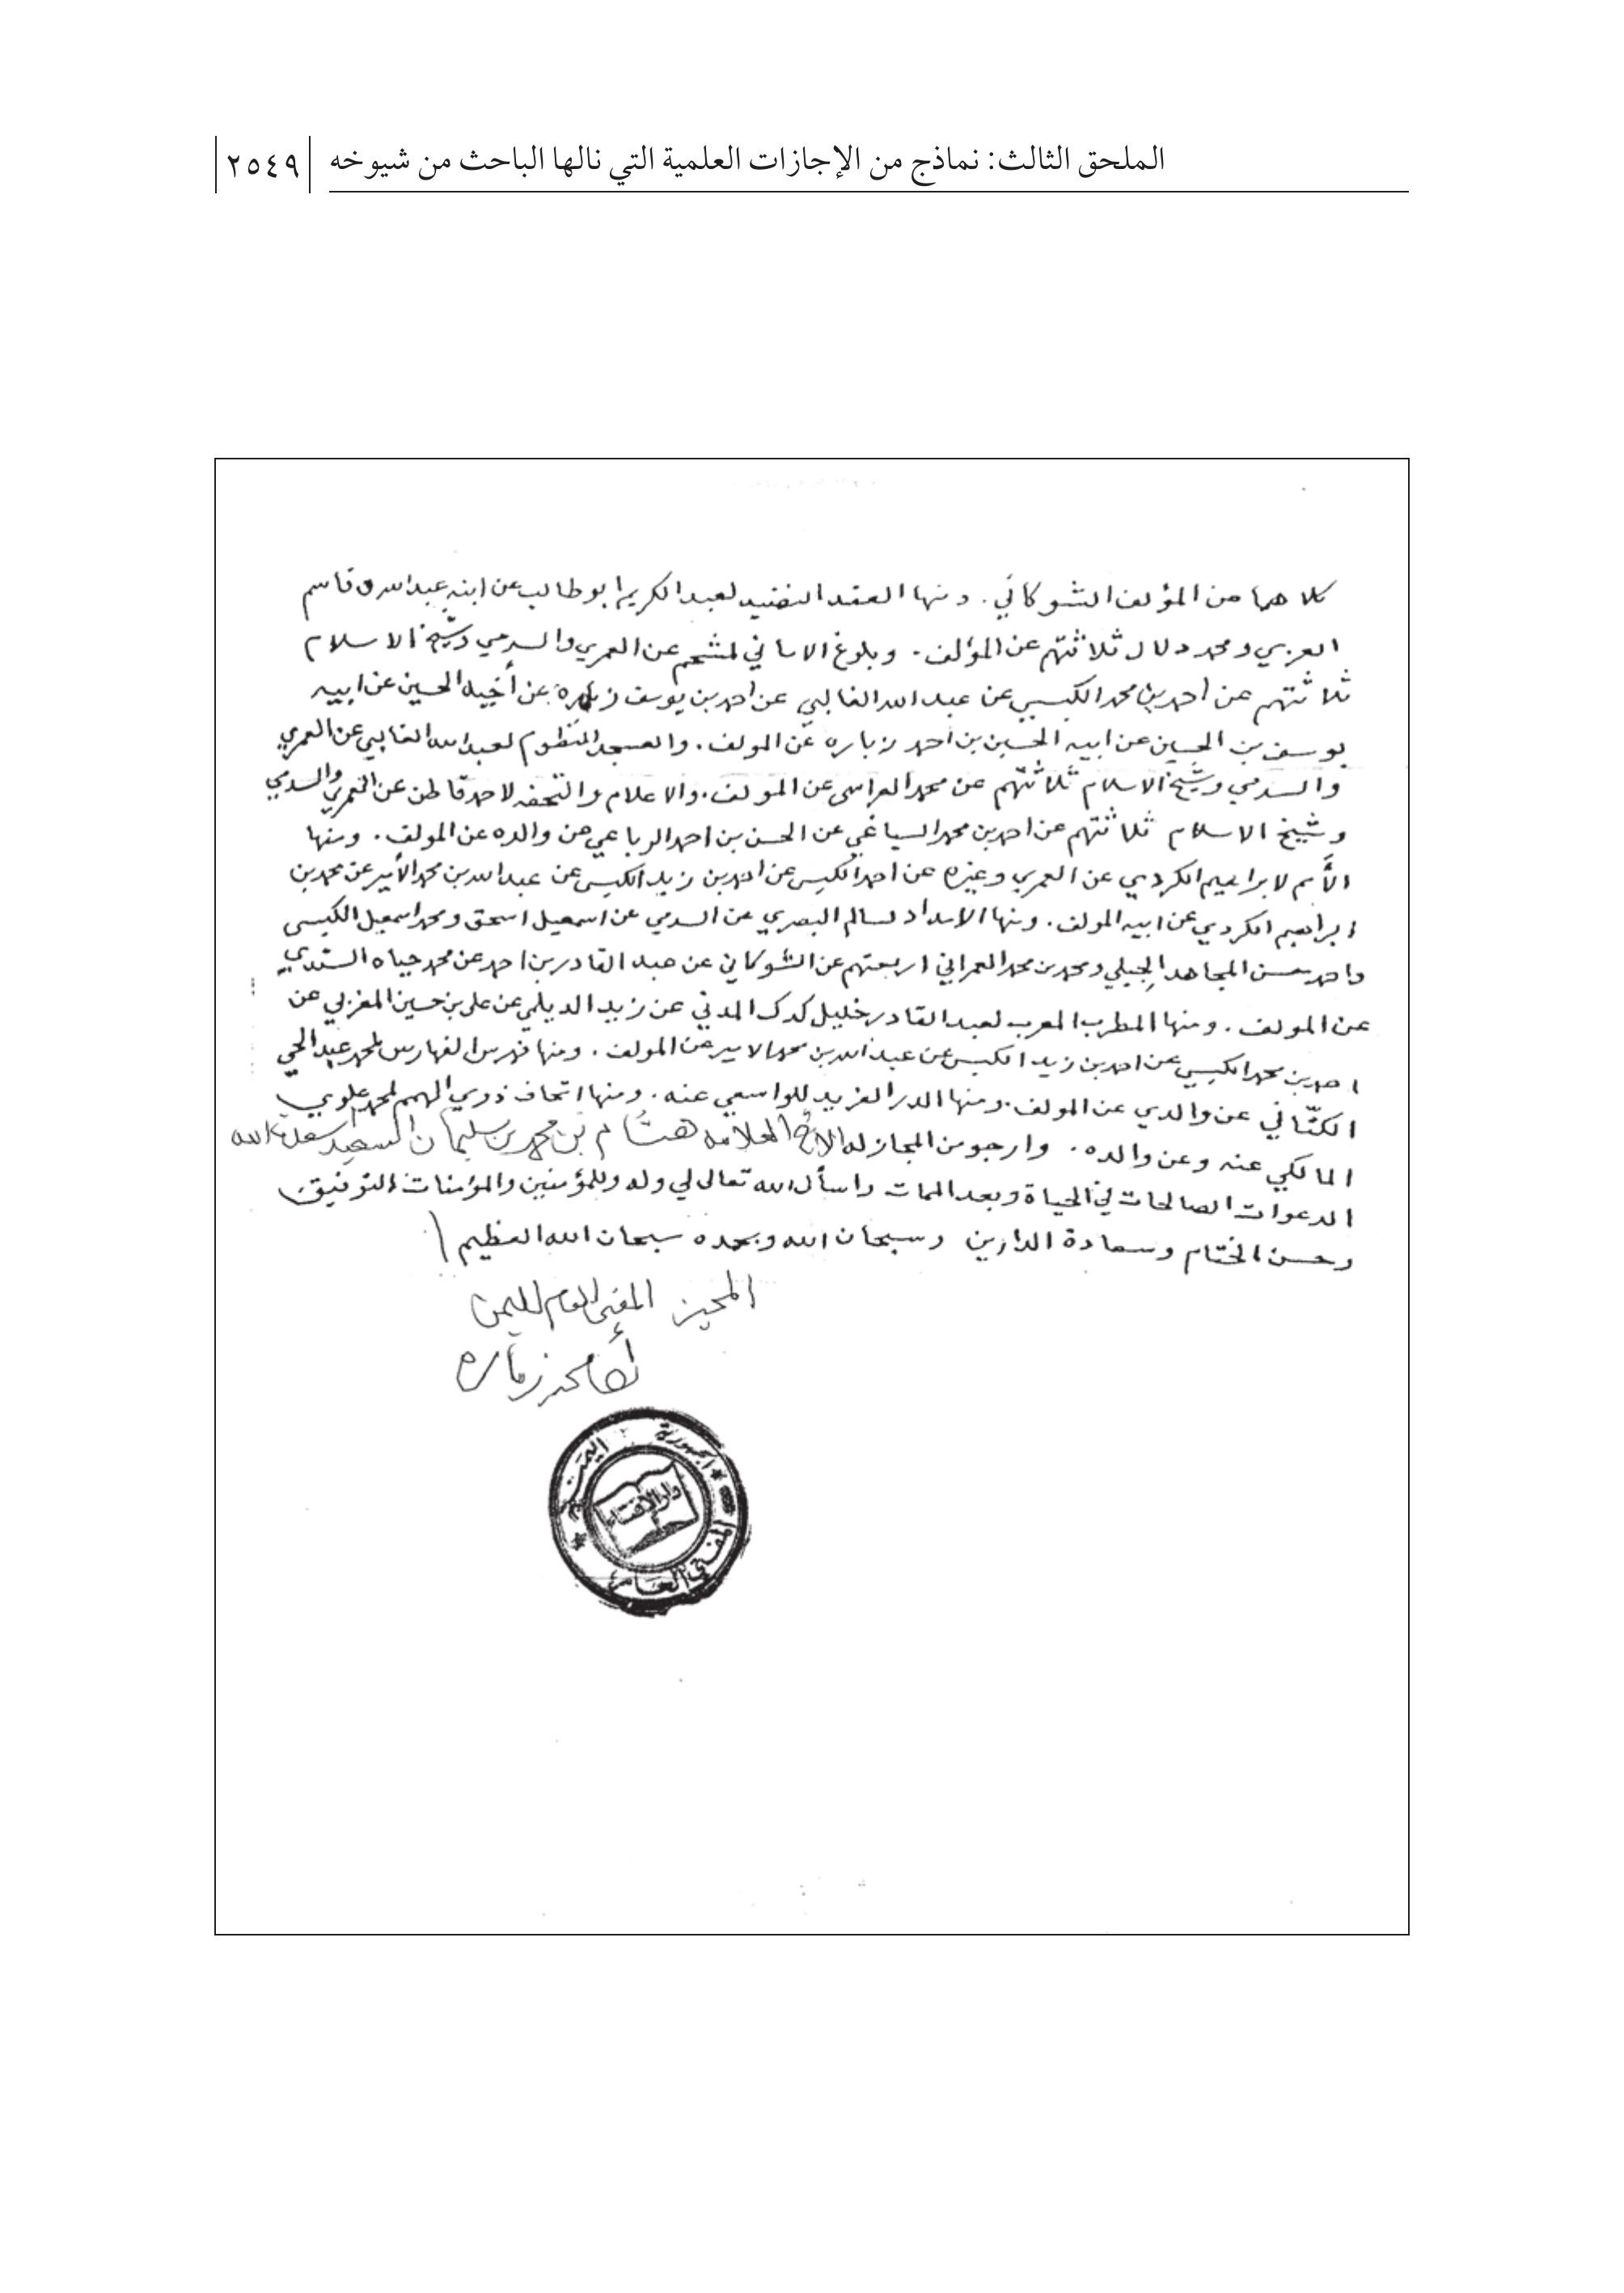 الملحق الثالث: نماذج من الإجازات العلمية التي نالها الباحث من شيوخه
٢٥٤٩
كلاهما عن المؤلف الشوكاني. ومنها العقد النضيد لعبد الكريم ابو طالب عن ابنه عبد الله وقاسم
العزبي ومحمد دلال ثلاثتهم عن المؤلف. وبلوغ الاماني لمشحم عن العمري والسدمي وشيخ الاسلام
ثلاثتهم عن احمد بن محمد الكبسي عن عبد الله الغالبي عن احمد بن يوسف زباره عن أخيه الحسين عن ابيه
يوسف بن الحسين عن ابيه الحسين بن احمد زباره عن المولف. والعسجد المنظوم لعبد الله الغالبي عن العمري
والسدمي وشيخ الاسلام ثلاثتهم عن محمد العراسي عن المولف. والاعلام والتحفه لاحمد قاطن عن العمري والسدمي
وشيخ الاسلام ثلاثتهم عن احمد بن محمد السياغي عن الحسن بن احمد الرباعي عن والده عن المولف. ومنها
الأمم لابراهيم الكردي عن العمري وغيره عن احمد الكبسي عن احمد بن زيد الكبسي عن عبد الله بن محمد الأمير عن محمد بن
ابراهيم الكردي عن ابيه المولف. ومنها الامداد لسالم البصري عن السدمي عن اسمعيل اسحق ومحمد اسمعيل الكبسي
واحمد بن المجاهد الجبلي ومحمد بن محمد العمراني اربعتهم عن الشوكاني عن عبد القادر بن احمد عن محمد حياه السندي
عن المولف. ومنها المطرب المعرب لعبد القادر خليل كدك المدني عن زيد الديلمي عن علي بن حسين المغربي عن
احمد بن محمد الكبسي عن احمد بن زيد الكبسي عن عبد الله بن محمد الامير عن المولف. ومنها فهرس الفهارس لمحمد عبد الحي
الكتّاني عن والدي عن المولف. ومنها الدر الفريد للواسعي عنه. ومنها اتحاف ذوي الهمم لمحمد علوي
المالكي عنه وعن والده. وارجو من المجاز له الأخ العلامه هشام بن محمد بن سليمان السعيد الله
الدعوات الصالحات في الحياة وبعد الممات واسأل الله تعالى لي وله وللمؤمنين والمؤمنات التوفيق
وحسن الختام وسعادة الدارين وسبحان الله وبحمده سبحان الله العظيم
المجيز المفتي العام لليمن
أحمد محمد زباره
الجمهورية اليمنية
دار الافتاء
المفتي العام